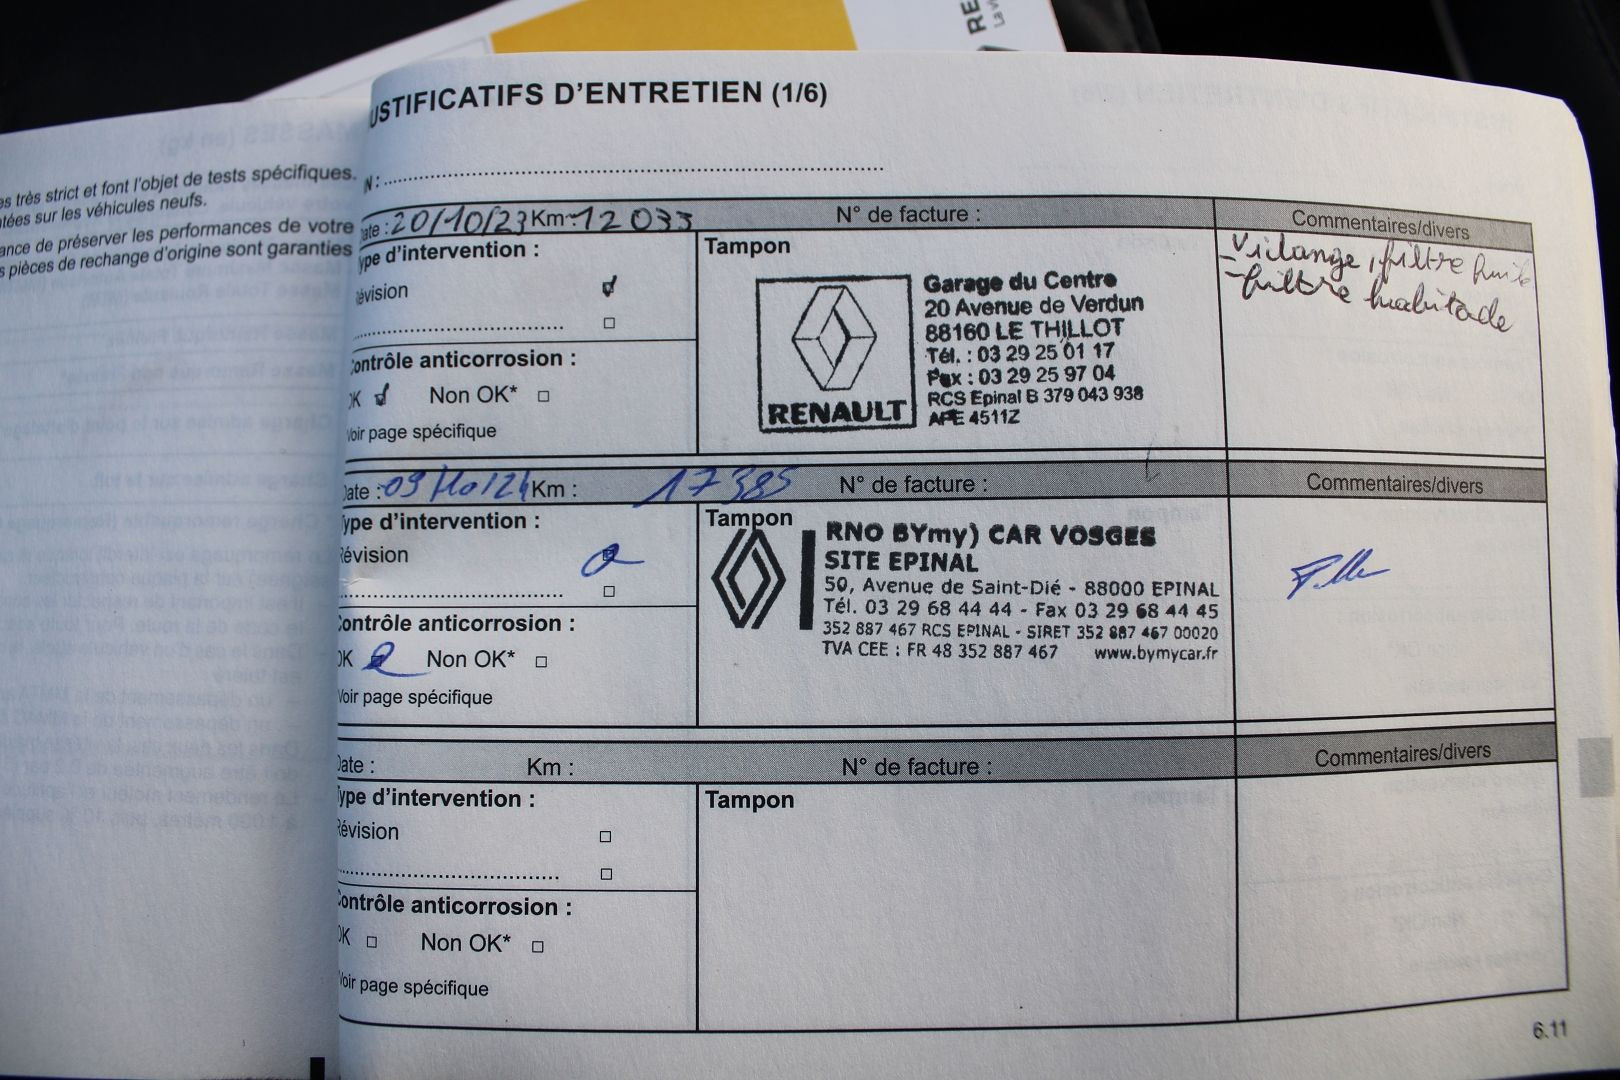 RE
La v
JUSTIFICATIFS D'ENTRETIEN (1/6)
es très strict et font l'objet de tests spécifiques.
tées sur les véhicules neufs.
ance de préserver les performances de votre
s pièces de rechange d'origine sont garanties
N :
Date : 20/10/23 Km : 12 033 N° de facture : Commentaires/divers
Type d'intervention :
Révision
Tampon
RENAULT
Garage du Centre
20 Avenue de Verdun
88160 LE THILLOT
Tél. : 03 29 25 01 17
Fax : 03 29 25 97 04
RCS Epinal B 379 043 938
APE 4511Z
- Vidange, filtre huile
- filtre habitacle
Contrôle anticorrosion :
OK Non OK*
Voir page spécifique
Date : 09/10/24 Km : 17 385 N° de facture : Commentaires/divers
Type d'intervention :
Révision
Tampon
RNO BYmy) CAR VOSGES
SITE EPINAL
50, Avenue de Saint-Dié - 88000 EPINAL
Tél. 03 29 68 44 44 - Fax 03 29 68 44 45
352 887 467 RCS EPINAL - SIRET 352 887 467 00020
TVA CEE : FR 48 352 887 467 www.bymycar.fr
Contrôle anticorrosion :
OK Non OK*
Voir page spécifique
Date : Km : N° de facture : Commentaires/divers
Type d'intervention :
Révision
Tampon
Contrôle anticorrosion :
OK Non OK*
Voir page spécifique
6.11